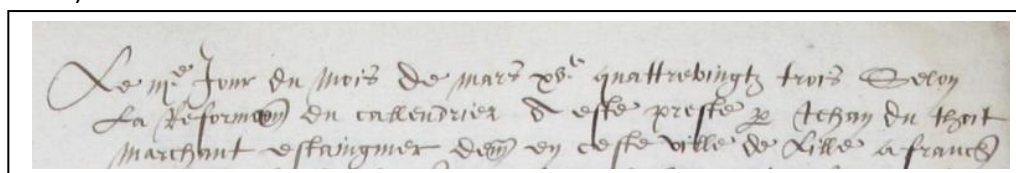 Le iij.e Jour du mois de mars xv.c quattrevingtz trois Selon
La Reformaon du callendrier A este preste p Jehan du thoit
marchant estaingnier dem en ceste ville de Lille a franch